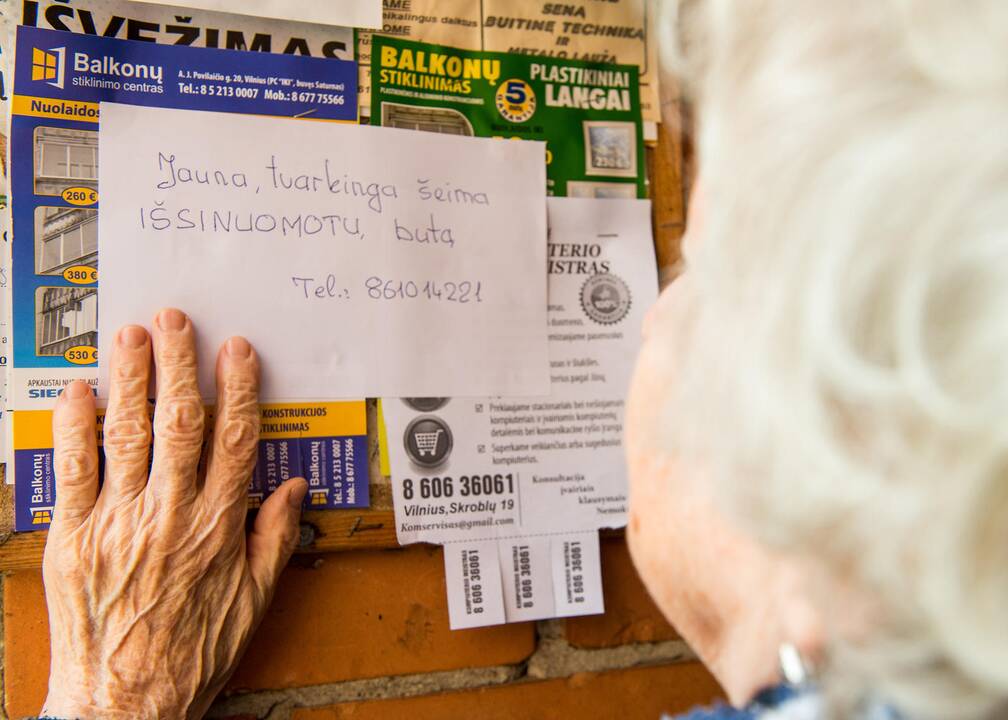 IŠVEŽIMAS
SENĄ
BUITINĘ TECHNIKĄ
IR
METALO LAUŽĄ
Balkonų
stiklinimo centras
A. J. Povilaičio g. 20, Vilnius (PC "IKI", buvęs Saturnas)
Tel.: 8 5 213 0007 Mob.: 8 677 75566
Nuolaidos
260 €
380 €
530 €
BALKONŲ
STIKLINIMAS
5
PLASTIKINIAI
LANGAI
230 €
Jauna, tvarkinga šeima
IŠSINUOMOTŲ butą
Tel.: 861014221
TERIO
ISTRAS
KONSTRUKCIJOS
STIKLINIMAS
Balkonų
stiklinimo centras
Tel.: 8 5 213 0007
Mob.: 8 677 75566
Balkonų
Prekiaujame stacionariais bei nešiojamais
kompiuteriais ir įvairiomis kompiuterių
detalėmis bei komunikacine ryšio įranga
Superkame veikiančius arba sugedusius
kompiuterius.
8 606 36061
Vilnius, Skroblų 19
Komservisas@gmail.com
Konsultacija
įvairiais
klausymais
Nemok
8 606 36061
8 606 36061
8 606 36061